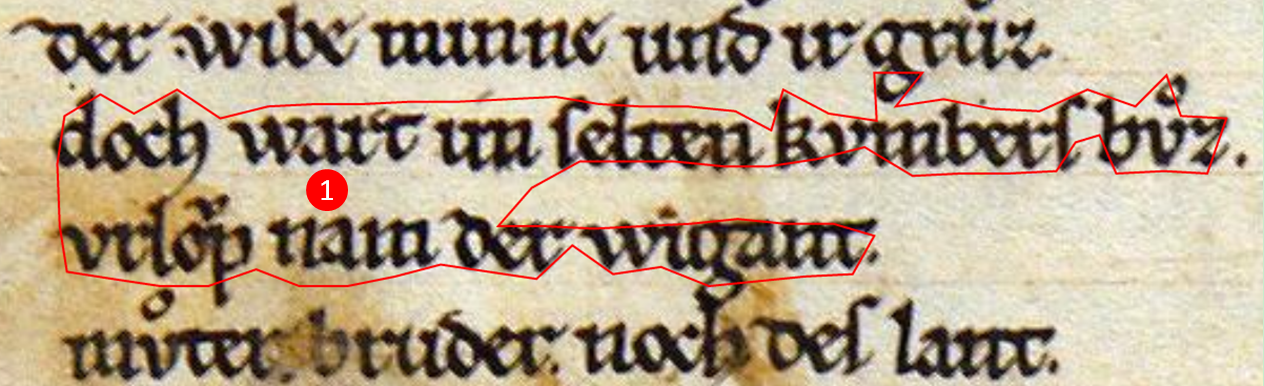 der wibe minne und ir grůz.
doch wart im ſelten kvmberſ bvͦz.
vrlo̊p nam der wigant.
mvͦter. bruder. noch deſ lant.
1